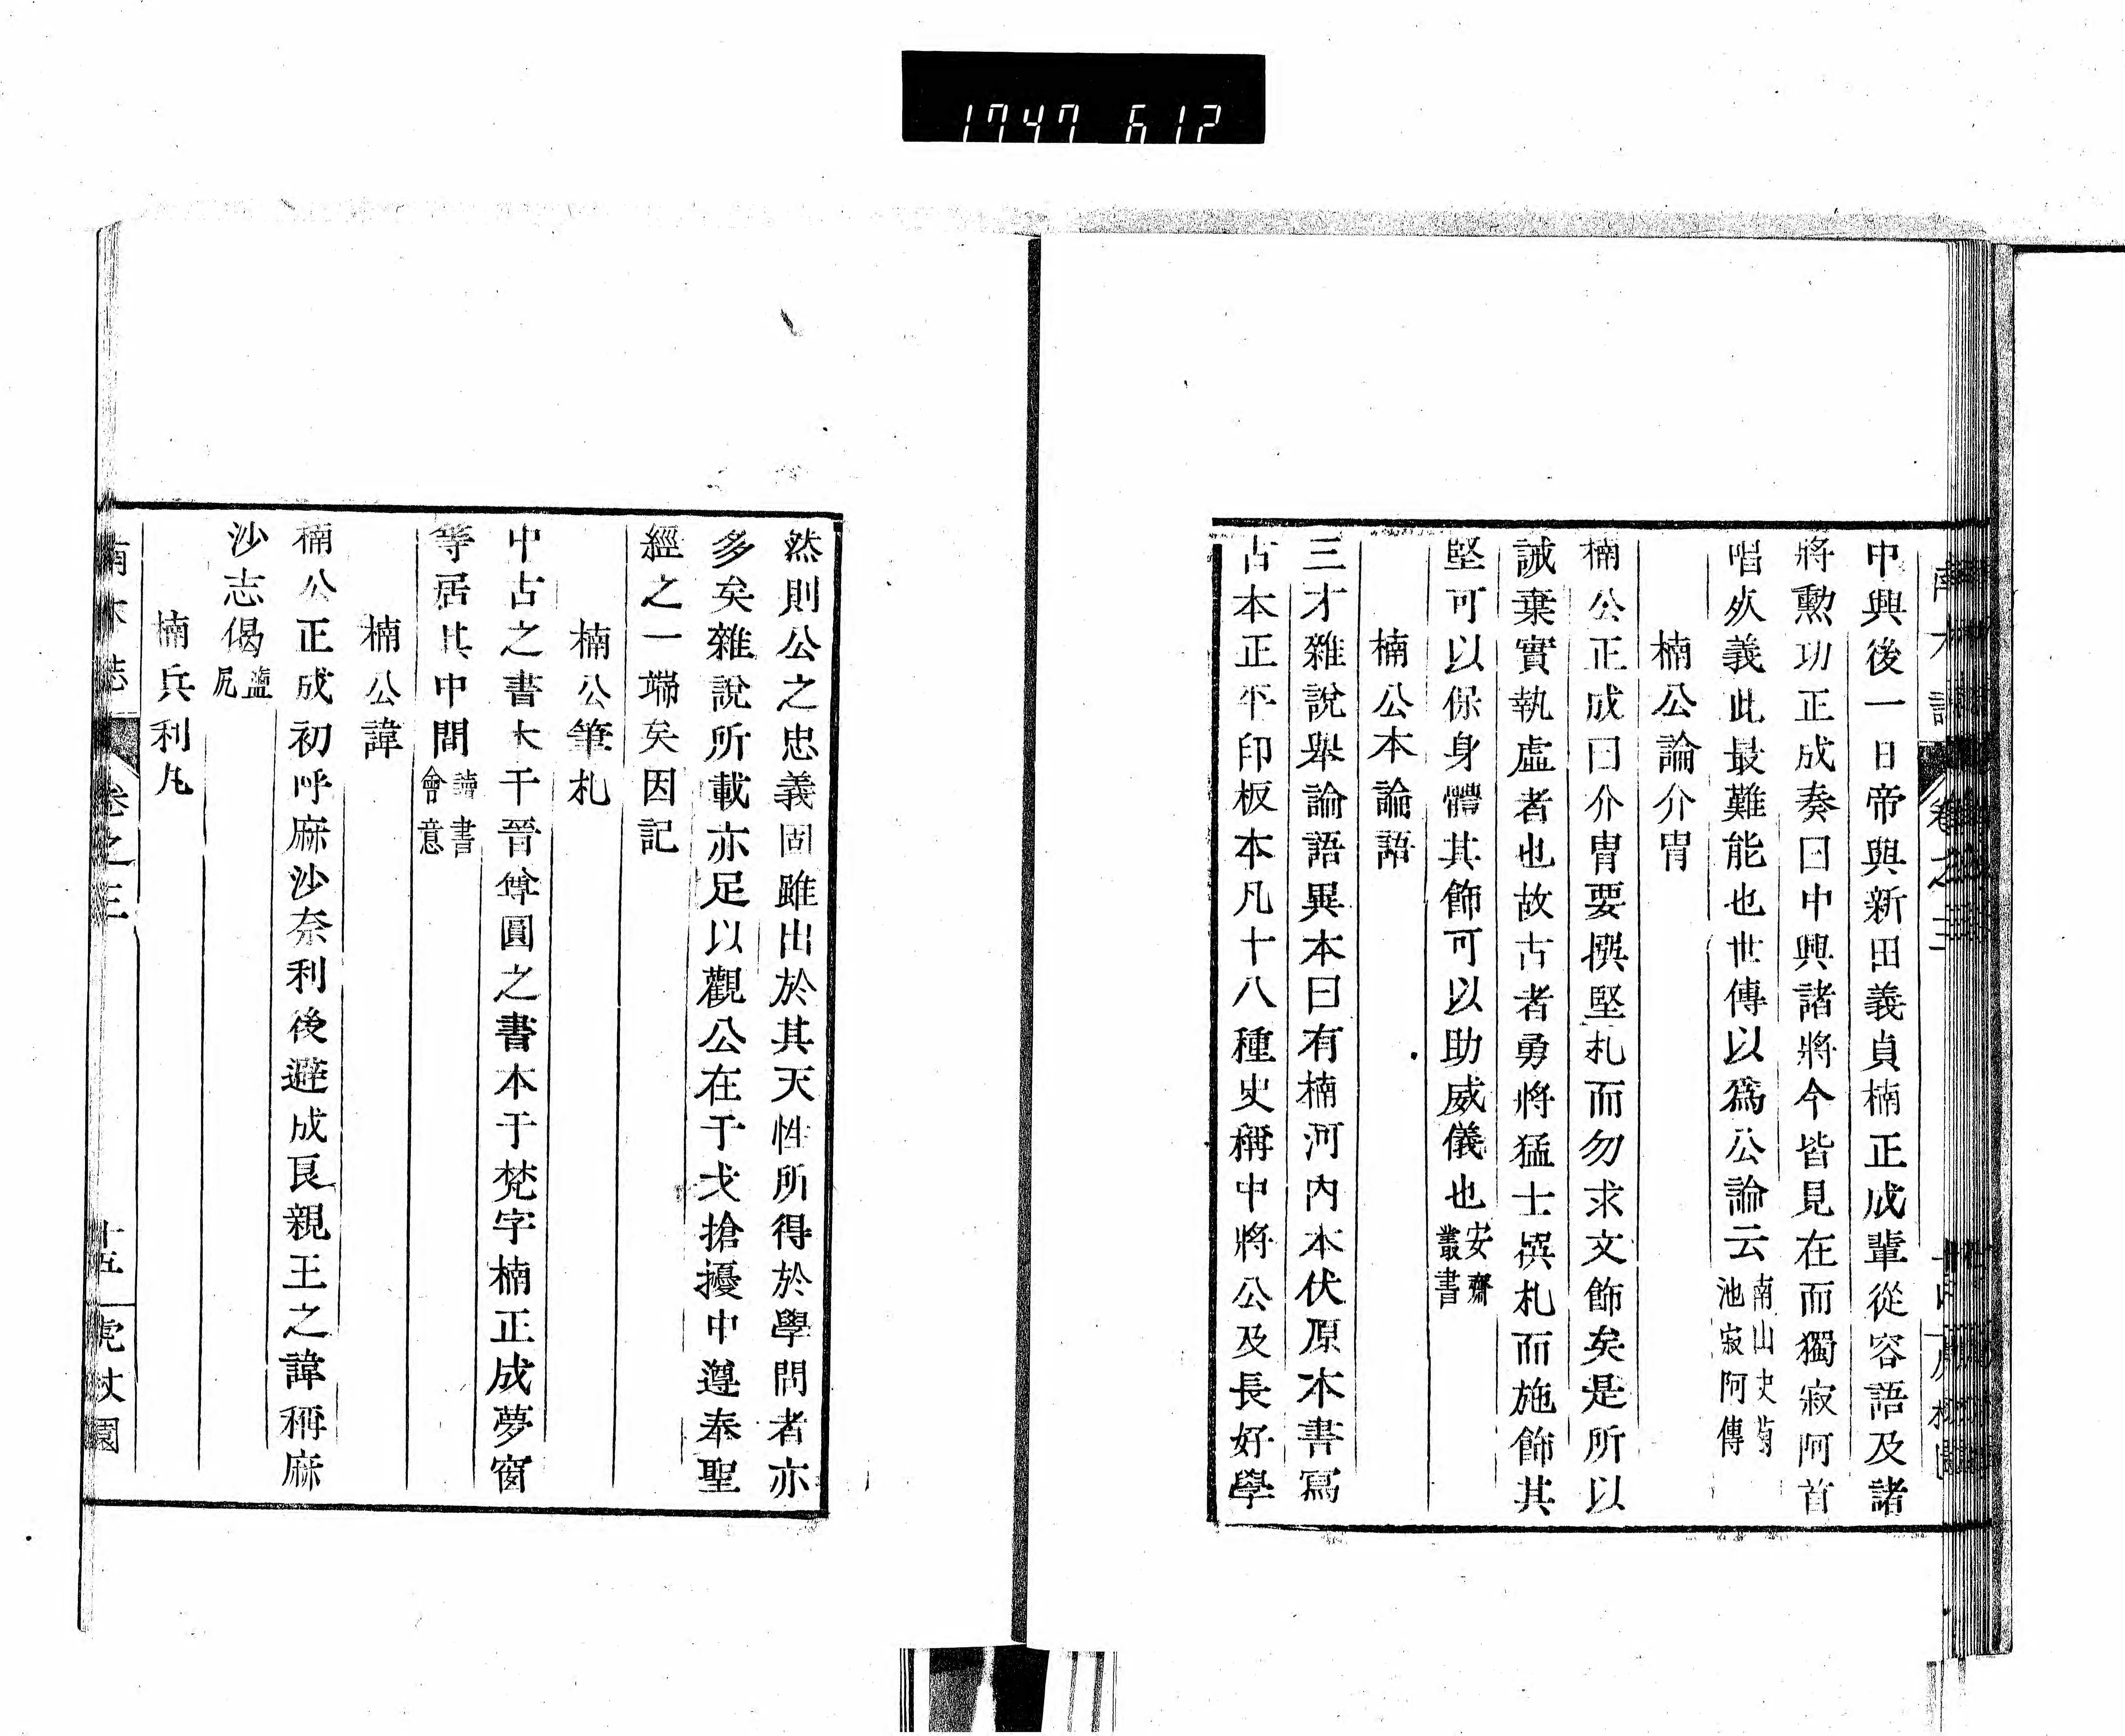 1747 612
中興後一日帝與新田義貞楠正成輩從容語及諸
將勲功正成奏曰中興諸將今皆見在而獨寂阿首
唱㷊義此最難能也世傳以爲公論云南山史菊池寂阿傳
楠公論介冑
楠公正成曰介冑要撰堅札而勿求文飾矣是所以
誡棄實執虛者也故古者勇將猛士撰札而施飾其
堅可以保身體其飾可以助威儀也安齋叢書
楠公本論語
三才雜說擧論語異本曰有楠河內本伏原本書寫
古本正平印板本凡十八種史稱中將公及長好學
然則公之忠義固雖出於其天性所得於學問者亦
多矣雜說所載亦足以觀公在干戈搶擾中遵奉聖
經之一端矣因記
楠公筆札
中古之書大干晉尊圓之書本于梵字楠正成夢窗
等居其中間讀書會意
楠公諱
楠公正成初呼麻沙奈利後避成良親王之諱稱麻
沙志偈鹽尻
楠兵利凡
卷之三
十五
虎杖園